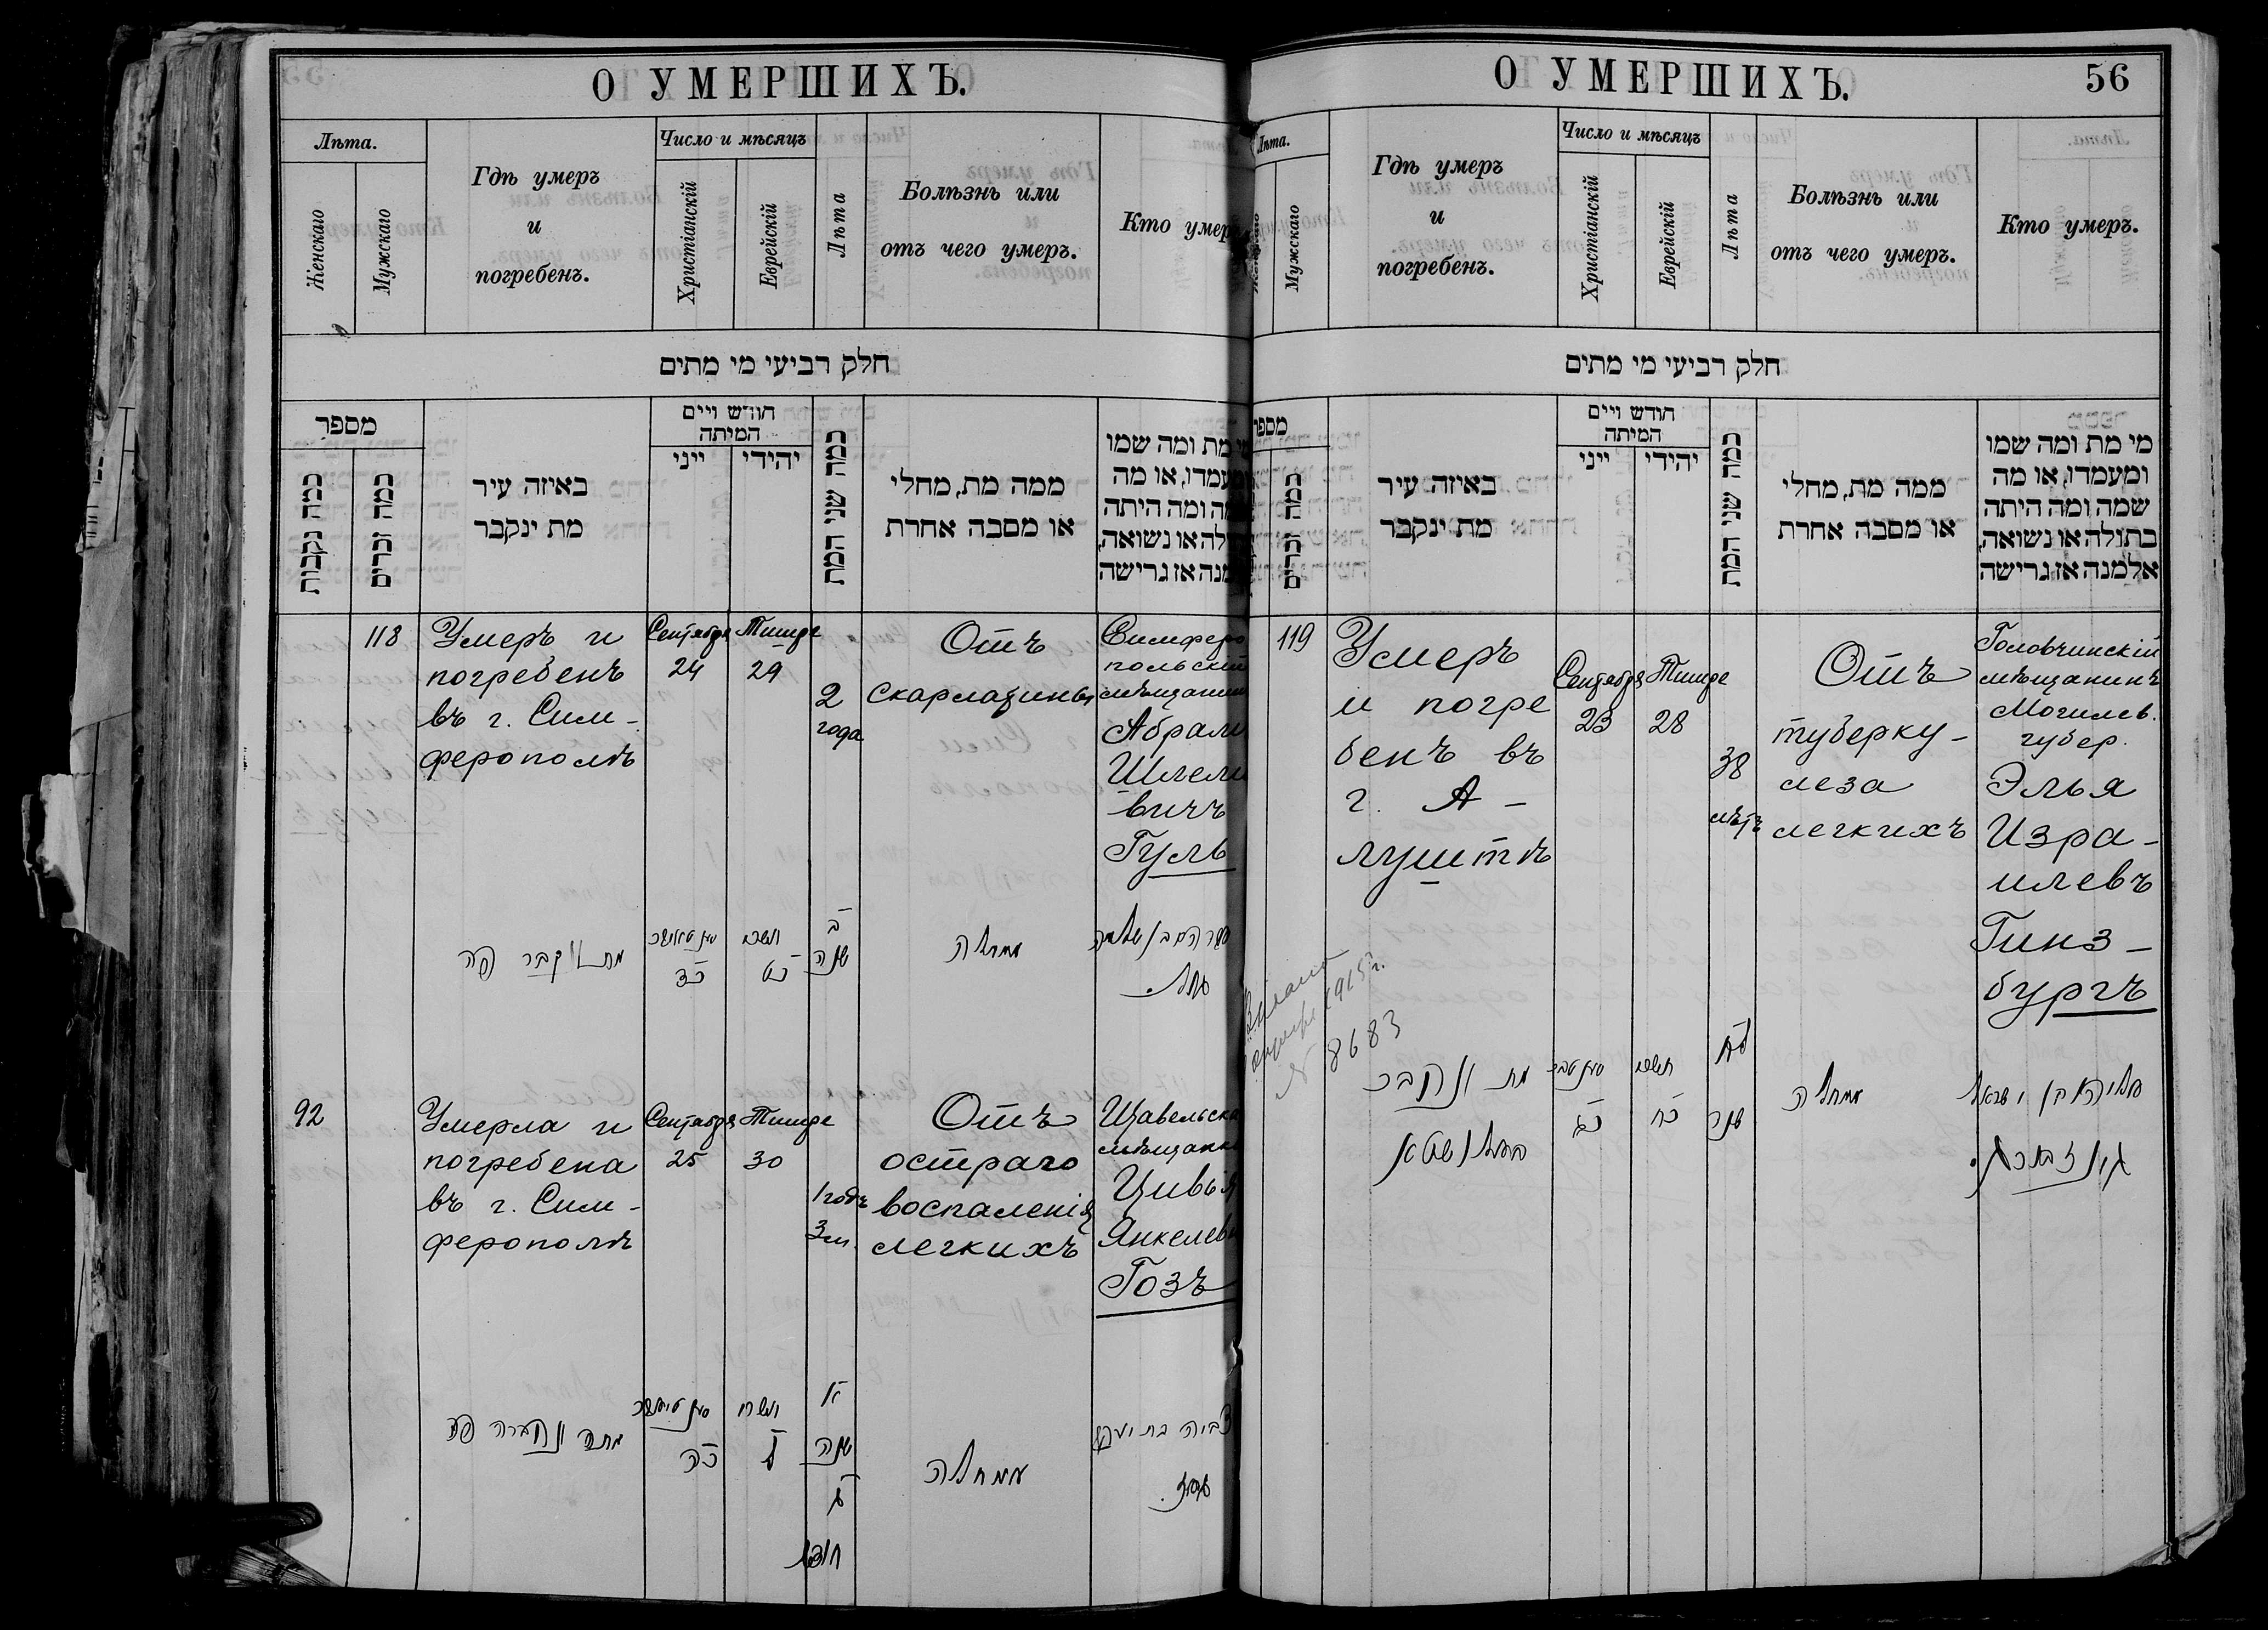 О УМЕРШИХЪ.
Лѣта.
Женскаго
Мужскаго
Гдѣ умеръ
и
погребенъ.
Число и мѣсяцъ
Христіанскій
Еврейскій
Лѣта
Болѣзнь или
отъ чего умеръ.
Кто умер
חלק רביעי מי מתים
מספר
כמה נקבות
כמה זכרים
באיזה עיר
מת ינקבר
חודש ויים
המיתה
ייני
יהודי
כמה שני המת
ממה מת, מחלי
או מסבה אחרת
מת ומה שמו
ומעמדו, או מה
ומה היתה
או נשואה,
אז גרישה
118
Умеръ и
погребенъ
въ г. Сим-
ферополѣ
Сентября
24
Тишре
29
2
года
Отъ
скарлатины
Симферо
польскій
мѣщанин
Абрам
Шлем
вичъ
Гуль
ב
שנה
92
Умерла и
погребена
въ г. Сим-
ферополѣ
Сентября
25
Тишре
30
1 годъ
3 м.
Отъ
остраго
воспаленія
легкихъ
Шавельска
мѣщанк
Цивья
Янкелев
Гозъ
א
שנה
ג
О УМЕРШИХЪ.
56
Лѣта.
Мужскаго
Гдѣ умеръ
и
погребенъ.
Число и мѣсяцъ
Христіанскій
Еврейскій
Лѣта
Болѣзнь или
отъ чего умеръ.
Кто умеръ.
חלק רביעי מי מתים
מספר
כמה זכרים
באיזה עיר
מת ינקבר
חודש ויים
המיתה
ייני
יהודי
כמה שני המת
ממה מת, מחלי
או מסבה אחרת
מי מת ומה שמו
ומעמדו, או מה
שמה ומה היתה
בתולה או נשואה,
אלמנה אז גרישה
119
Умеръ
и погре
бенъ въ
г. А-
луштѣ
Сентября
23
Тишре
28
38
лѣтъ
Отъ
туберку-
леза
легкихъ
Головчинскій
мѣщанинъ
Могилев.
губер.
Элья
Изра-
илевъ
Гинз-
бургъ
1915 г.
№ 8683
מת ונקבר
שנה